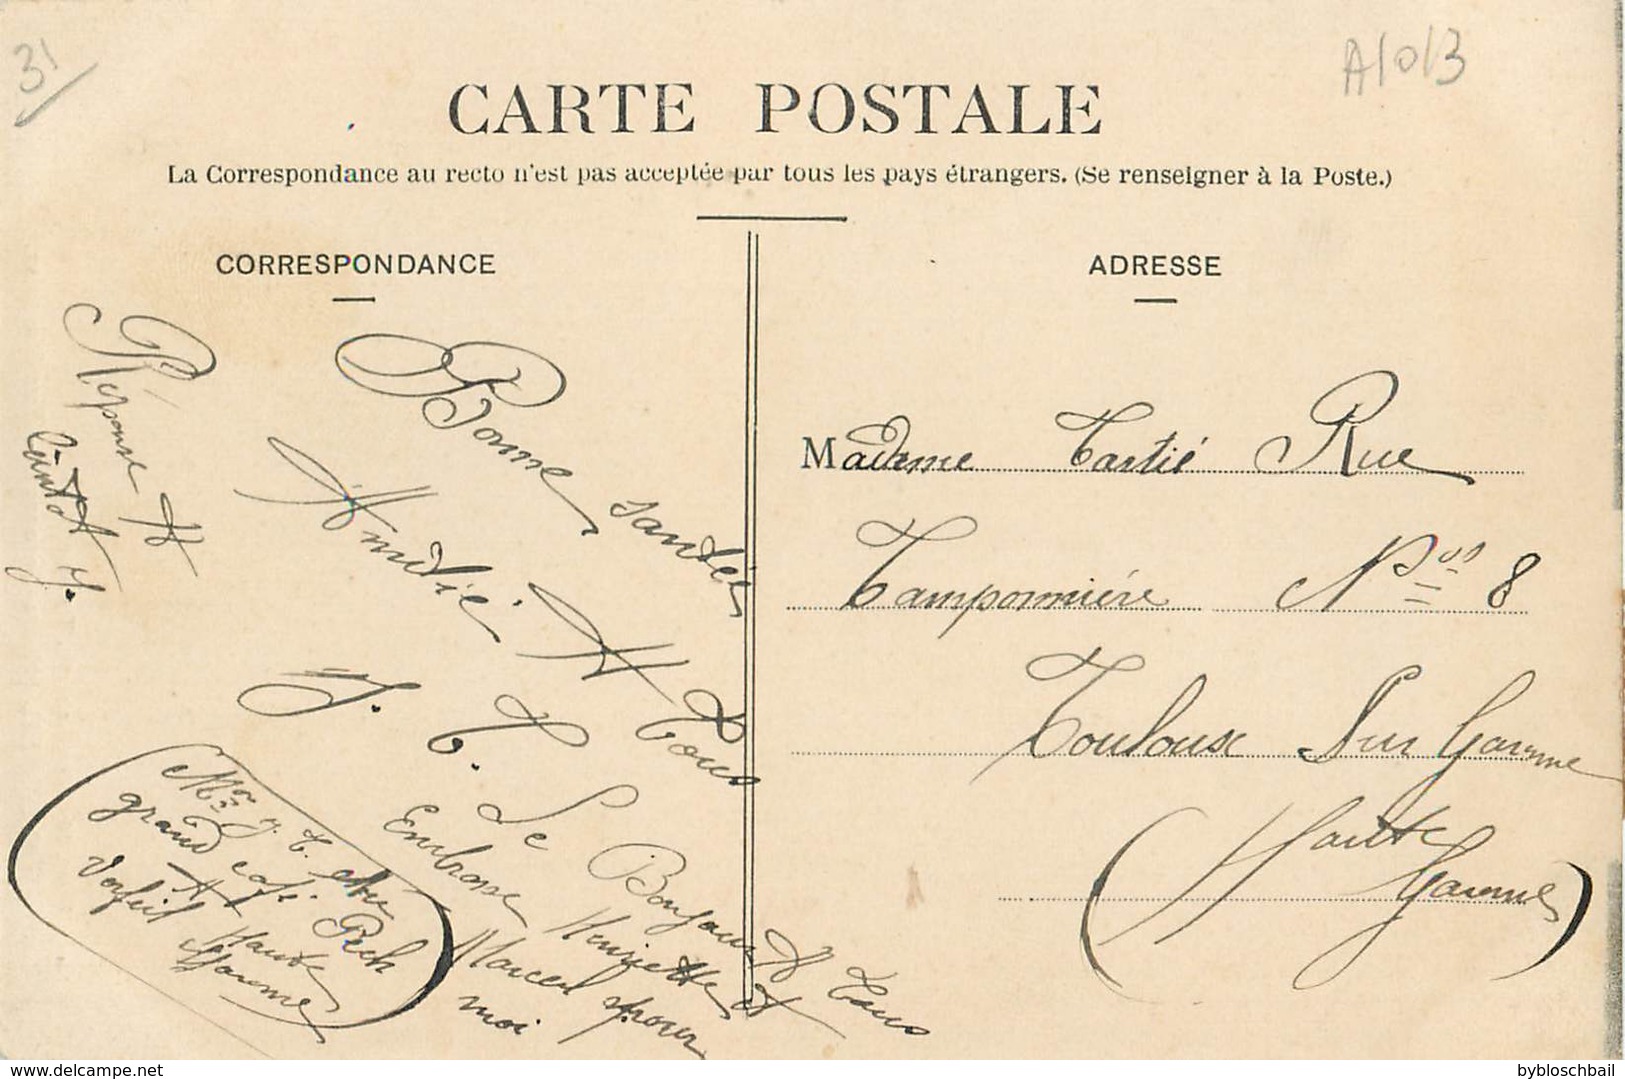 31
A/0/3
CARTE POSTALE
La Correspondance au recto n'est pas acceptée par tous les pays étrangers. (Se renseigner à la Poste.)
CORRESPONDANCE
ADRESSE
Réponse A
J.
Bonne santée
Amitié A Tous
J. T.
Le Bonjour A Tous
Embrasse Henriette et
Marcel pour
moi
Mr J. T. chez
grand café Pech
A
Verfeil Haute
Garonne
Madame Tartié Rue
Tamponnière Nos 8
Toulouse Sur Garonne
(Haute
Garonne)
www.delcampe.net
bybloschbail